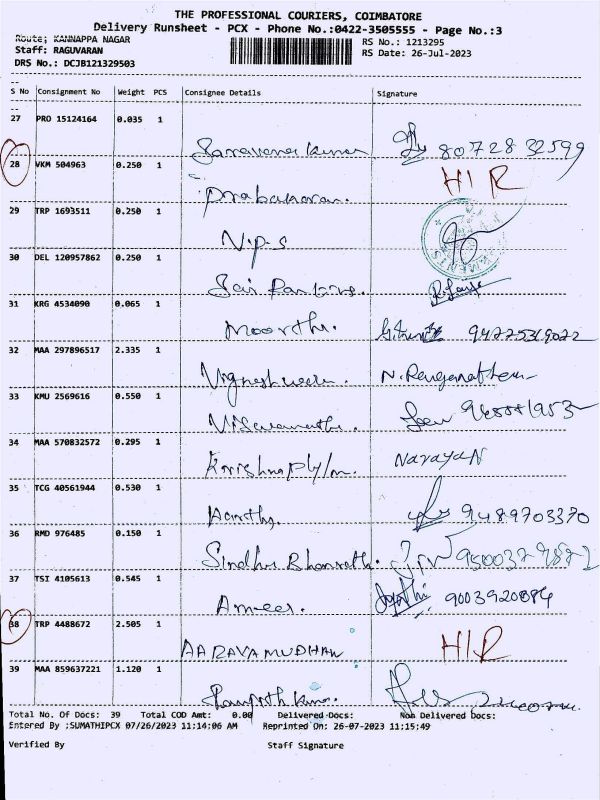 THE PROFESSIONAL COURIERS, COIMBATORE
Delivery Runsheet - PCX - Phone No.:0422-3505555 - Page No.:3
Route; KANNAPPA NAGAR
RS No.: 1213295
Staff: RAGUVARAN
RS Date: 26-Jul-2023
DRS No.: DCJB121329503
S No Consignment No Weight PCS Consignee Details Signature
27 PRO 15124164 0.035 1
Saravana kumar 80728 32599
28 VKM 504963 0.250 1 HIR
Prabakaran.
29 TRP 1693511 0.250 1
N.P.S
30 DEL 120957862 0.250 1
Sai
31 KRG 4534090 0.065 1
Moorthi.
32 MAA 297896517 2.335 1
Vigneshwaran. N. Renganathan
33 KMU 2569616 0.550 1
Viswanathan
34 MAA 570832572 0.295 1
Krishna Narayan
35 TCG 40561944 0.530 1
Aarthy 9489703370
36 RMD 976485 0.150 1
Sindhu Bharath.
37 TSI 4105613 0.545 1
Ameer. Jyothi 9003920884
38 TRP 4488672 2.505 1
AARAVAMUDHAN HIR
39 MAA 859637221 1.120 1
Total No. Of Docs: 39 Total COD Amt: 0.00 Delivered Docs: Non Delivered Docs:
Entered By ;SUMATHIPCX 07/26/2023 11:14:06 AM Reprinted On: 26-07-2023 11:15:49
Verified By Staff Signature